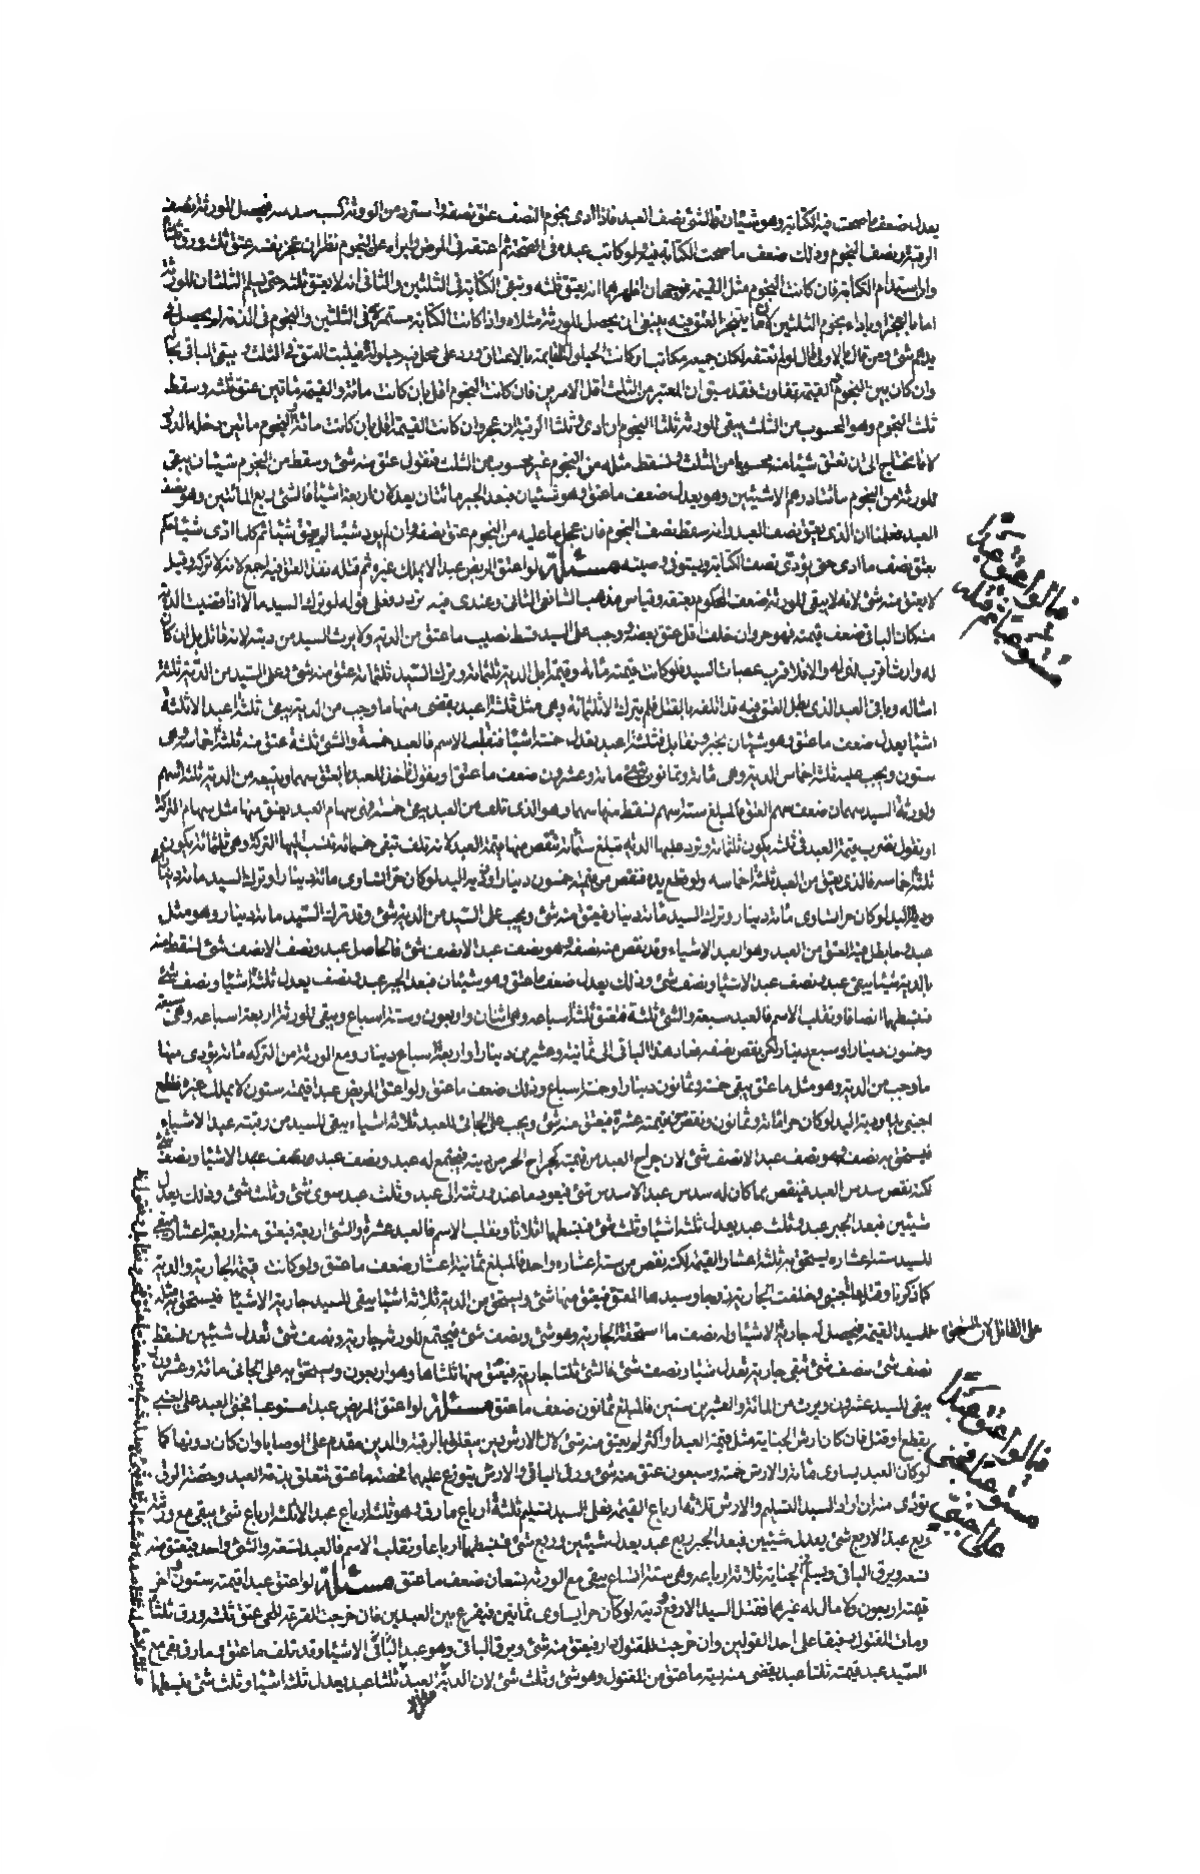 يعدل ضعف ما صحت فيه الكتابة وهو شيئان فالشئ نصف العبد فاذا ادى نجوم النصف عتق نصفه واسترد من الورثة كسب سدسه فيحصل للورثة نصف
الرقبة ونصف النجوم وذلك ضعف ما صحت الكتابة فيه ولو كاتب عبده في الصحة ثم اعتقه في المرض او ابراه عن النجوم نظر ان عجز نفسه عتق ثلثه ورق ثلثاه
وان استدام الكتابة فان كانت النجوم مثل القيمة فوجهان اظهرهما انه يعتق ثلثه وتبقى الكتابة في الثلثين والثاني انه لا يعتق ثلثه حتى يسلم الثلثان للورثة
اما بالعجز او باداء نجوم الثلثين لان ما يتنجز العتق فيه ينبغي ان يحصل للورثة مثلاه واذا كانت الكتابة مستمرة في الثلثين والنجوم في الذمة لم يحصل في
يدهم شئ ومن قال بالاول قال لو لم نعتقه لكان جميعه مكاتبا وكانت الحيلولة قائمة
وان كان بين النجوم والقيمة تفاوت فقد سبق ان المعتبر من الثلث اقل الامرين فان كانت النجوم اقل بان كانت مائة والقيمة مائتين عتق ثلثه وسقط
ثلث النجوم وهو المحسوب من الثلث يبقى للورثة ثلثا النجوم ان ادى وثلثا الرقبة ان عجز وان كانت القيمة اقل بان كانت مائة والنجوم مائتين دخله الدور
لانا نحتاج الى ان نعتق شيئا منه محسوبا من الثلث ونسقط مثله من النجوم غير محسوب من الثلث فنقول عتق منه شئ وسقط من النجوم شيئان يبقى
للورثة من النجوم مائتا درهم الا شيئين وهو يعدل ضعف ما عتق وهو شيئان فبعد الجبر مائتان يعدلان اربعة اشيا فالشئ ربع المائتين وهو نصف
العبد فعلمنا ان الذي يعتق نصف العبد وانه سقط نصف النجوم فان عجل ما عليه من النجوم عتق نصفه وان لم يود شيئا لم يعتق شئ ثم كلما ادى شيئا حكم
بعتق نصف ما ادى حتى يؤدي نصف الكتابة ويستوفي وصيته مسئلة لو اعتق المريض عبدا لا يملك غيره ثم قتله نفذ العتق في جميعه لانه لا تركة وقيل
لا يعتق منه شئ لانه لا يبقى للورثة ضعف المحكوم بعتقه وقياس مذهب الشافعي الثاني وعندي فيه تردد فعلى قوله لو ترك السيد مالا اذا قضيت الدية
منه كان الباقي ضعف قيمته فهو حر وان خلف اقل عتق بعضه ووجب على السيد قسط نصيب ما عتق من الدية ولا يرث السيد من ديته لانه قاتل بل ان كان
له وارث اقرب فله والا فلاقرب عصبات السيد فلو كانت قيمته مائة وقيمة ابل الدية ثلثمائة وترك السيد ثلثمائة عتق منه شئ وعلى السيد من الدية ثلثة
امثاله وباقي العبد الذي بطل العتق فيه قد اتلفه بالقتل فلم يترك الا ثلثمائة وهي مثل ثلثة اعبد يقضى منها ما وجب من الدية يبقى ثلثة اعبد الا ثلثة
اشيا يعدل ضعف ما عتق وهو شيئان نجبر ونقابل فثلثة اعبد يعدل خمسة اشيا فنقلب الاسم فالعبد خمسة والشئ ثلثة عتق منه ثلثة اخماسه وهي
ستون ويجب عليه ثلثة اخماس الدية وهي مائة وثمانون تبقى مائة وعشرون ضعف ما عتق او نقول ناخذ للعبد بالعتق سهما ويتبعه من الدية ثلثة اسهم
ولورثة السيد سهمان ضعف سهم العتق فالمبلغ ستة اسهم نسقط منها سهما وهو الذي تلف من العبد يبقى خمسة فهي سهام العبد يعتق منها مثل سهام التركة
او نقول نضرب قيمة العبد في ثلثة يكون ثلثمائة ونزيد عليها الدية مبلغ ستمائة ننقص منها قيمة العبد لانه تلف تبقى خمسمائة فننسب اليها التركة وهي ثلثمائة يكون
ثلثة اخماسه فالذي يعتق من العبد ثلثة اخماسه ولو قطع يده فنقص من قيمته خمسون دينارا ودية اليد لو كان حرا تساوي مائة دينار وترك السيد مائة دينار
ودية اليد لو كان حرا تساوي مائة دينار وترك السيد مائة دينار فيعتق منه شئ ويجب على السيد من الدية شئ وقد ترك السيد مائة دينار وهو مثل
عبد وما بطل فيه العتق من العبد وهو العبد الا شيئا وقد نقص منه نصفه وهو نصف عبد الا نصف شئ فالحاصل عبد ونصف الا نصف شئ نسقط منه
بالدية شيئا يبقى عبد ونصف عبد الا شيئا ونصف شئ وذلك يعدل ضعف ما عتق وهو شيئان فبعد الجبر عبد ونصف يعدل ثلثة اشيا ونصف شئ
فنبسطها انصافا ونقلب الاسم فالعبد سبعة والشئ ثلثة فتعتق ثلثة اسباعه وهي اثنان واربعون وستة اسباع ويبقى للورثة اربعة اسباعه وهي سبعة
وخمسون دينارا وسبع دينار لكن نقص نصفه فعاد هذا الباقي الى ثمانية وعشرين دينارا واربعة اسباع دينار ومع الورثة من التركة مائة يؤدي منها
ما وجب من الدية وهو مثل ما عتق يبقى خمسة وثمانون دينارا وخمسة اسباع وذلك ضعف ما عتق ولو اعتق المريض عبدا قيمته ستون لا يملك غيره فقطع
اجنبي يده ودية اليد لو كان حرا مائة وثمانون ونقص من قيمته عشرة فيعتق منه شئ ويجب على الجاني للعبد ثلاثة اشياء يبقى للسيد من رقبته عبد الا شيئا
فيستحق به نصفه وهو نصف عبد الا نصف شئ لان جراح العبد من قيمته كجراح الحر من ديته فيجتمع له عبد ونصف عبد الا شيئا ونصف شئ
لكنه نقص سدس العبد فينقص بما كان له سدس عبد الا سدس شئ فيعود ما عند ورثته الى عبد وثلث عبد سوى شئ وثلث شئ وذلك يعدل
شيئين فبعد الجبر عبد وثلث عبد يعدل ثلثة اشيا وثلث شئ فنبسطها اثلاثا ونقلب الاسم فالعبد عشرة والشئ اربعة فيعتق منه اربعة اعشاره يبقى
للسيد ستة اعشاره يستحق به ثلثة اعشار القيمة لكنه نقص من ستة اعشاره واحد فالمبلغ ثمانية اعشار ضعف ما عتق ولو كانت قيمة الجارية والدية
كما ذكرنا وقتلها اجنبي وخلفت الجارية زوجا وسيدها المعتق فيعتق منها شئ ويستحق من الدية ثلاثة اشيا يبقى للسيد جارية الا شيئا فيستحق به مثله
على القاتل لان المستحق للسيد القيمة فيحصل له جارية الا شيئا وله نصف ما استحقته الجارية وهو شئ ونصف شئ فيجتمع للورثة جارية ونصف شئ تعدل شيئين نسقط
نصف شئ بنصف شئ تبقى جارية تعدل شيئا ونصف شئ فالشئ ثلثا جارية فيعتق منها ثلثاها وهو اربعون ويستحق به على الجاني مائة وعشرون
يبقى للسيد عشرون ويرث من المائة والعشرين ستين فالمبلغ ثمانون ضعف ما عتق مسئلة لو اعتق المريض عبدا مستوعبا فجنى العبد على اجنبي
بقطع او قتل فان كان ارش الجناية مثل قيمة العبد او اكثر لم يعتق منه شئ لان الارش دين يتعلق بالرقبة والدين مقدم على الوصايا وان كان دونها كما
لو كان العبد يساوي مائة والارش خمسة وسبعون عتق منه شئ ورق الباقي والارش يتوزع عليهما فحصة ما عتق تتعلق بذمة العبد وحصة الرق
تؤدى منه ان اراد السيد التسليم والارش ثلاثة ارباع القيمة فعلى السيد تسليم ثلثة ارباع ما رق وهو ثلثة ارباع عبد الا ثلثة ارباع شئ يبقى مع ورثته
ربع عبد الا ربع شئ يعدل شيئين فبعد الجبر ربع عبد يعدل شيئين وربع شئ فنبسطها ارباعا ونقلب الاسم فالعبد تسعة والشئ واحد فيعتق منه
تسعه ويرق الباقي ويسلم في الجناية ثلاثة ارباعه وهي ستة اتساع يبقى مع الورثة تسعان ضعف ما عتق مسئلة لو اعتق عبدا قيمته ستون واخر
قيمته اربعون ولا مال له غيرهما فقتل السيد الارفع وديته لو كان حرا يساوي ثمانين فيقرع بين العبدين فان خرجت القرعة للحي عتق ثلثه ورق ثلثاه
ومات المقتول رقيقا على احد القولين وان خرجت للمقتول فيعتق منه شئ ويرق الباقي وهو عبد الا شيئا وقد تلف ما عتق وما رق بقي مع
السيد عبد قيمته ثلثا عبد يقضى منه دية ما عتق من المقتول وهو شئ وثلث شئ لان الدية كالعبد وثلثا عبد يعدل ثلثة اشيا وثلث شئ نبسطها
قالوا اعتق عبدا
مستوعبا ثم قتله
قالوا اعتق عبدا
مستوعبا فجنى
على اجنبي